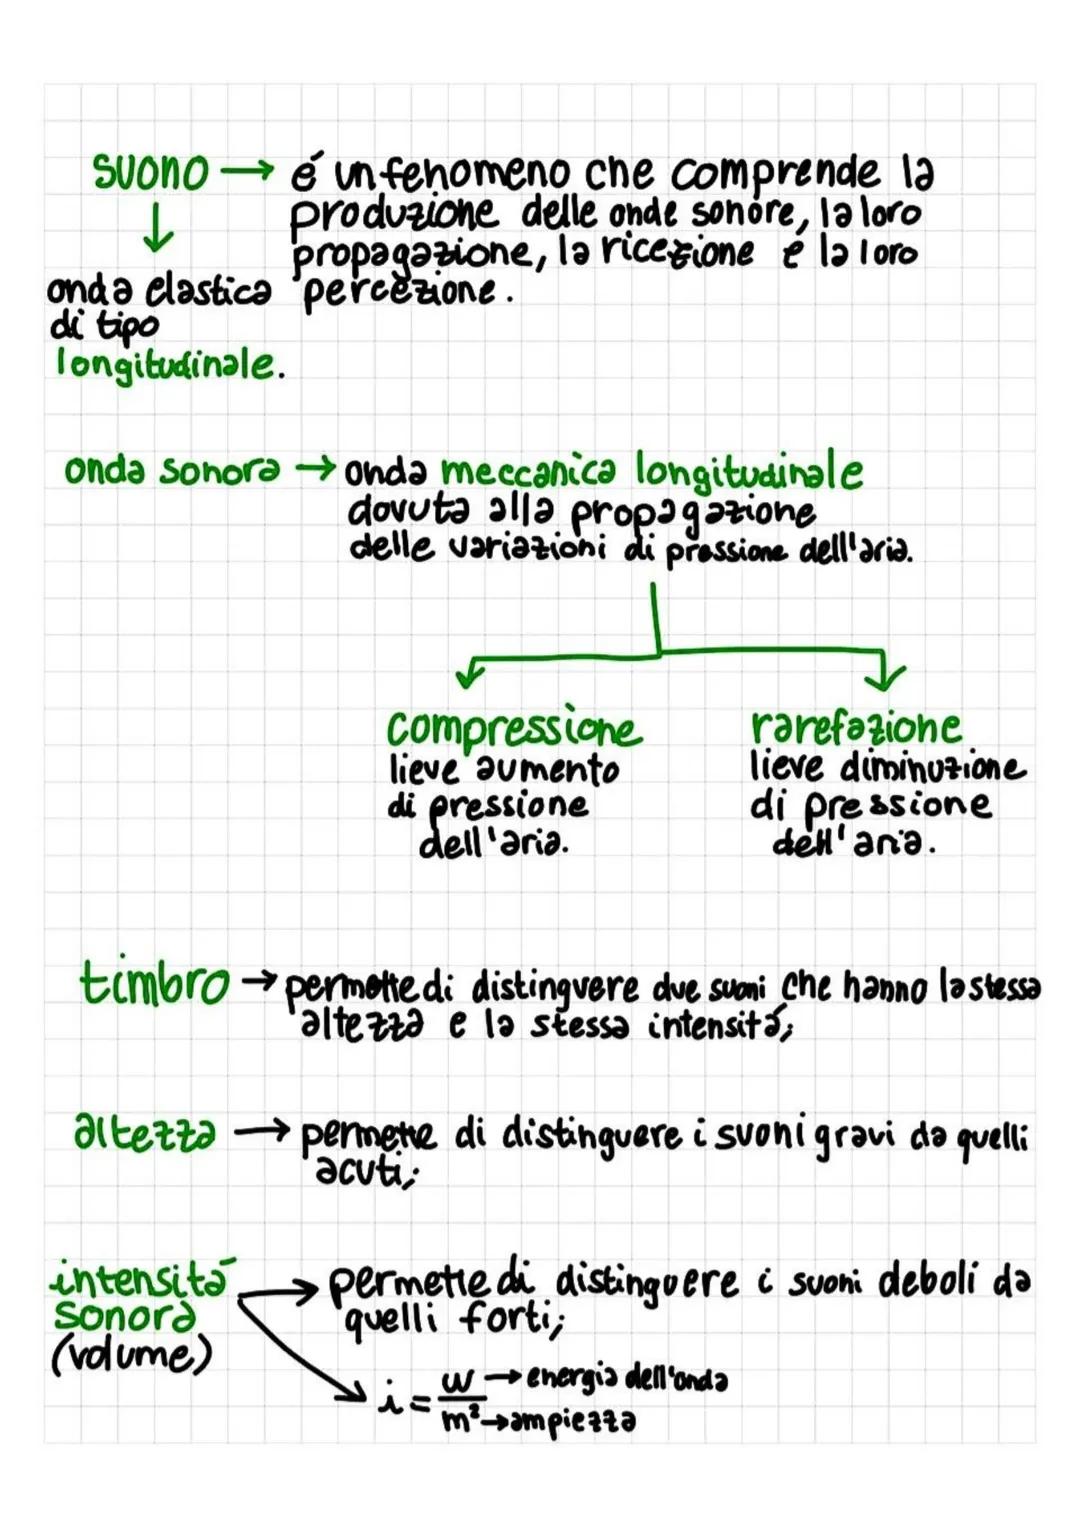 suono → é un fenomeno che comprende la
produzione delle onde sonore, la loro
propagazione, la ricezione e la loro
percezione.
↓
onda elastica
di tipo
longitudinale.
onda sonora → onda meccanica longitudinale
dovuta alla propagazione
delle variazioni di pressione dell'aria.
compressione
lieve aumento
di pressione
dell'aria.
rarefazione
lieve diminuzione
di pressione
dell'aria.
timbro → permette di distinguere due suoni che hanno la stessa
altezza e la stessa intensitá;
altezza → permette di distinguere i suoni gravi da quelli
acuti;
intensitá
sonora
(volume)
→ permette di distinguere i suoni deboli da
quelli forti;
i = w → energia dell'onda
m² → ampiezza